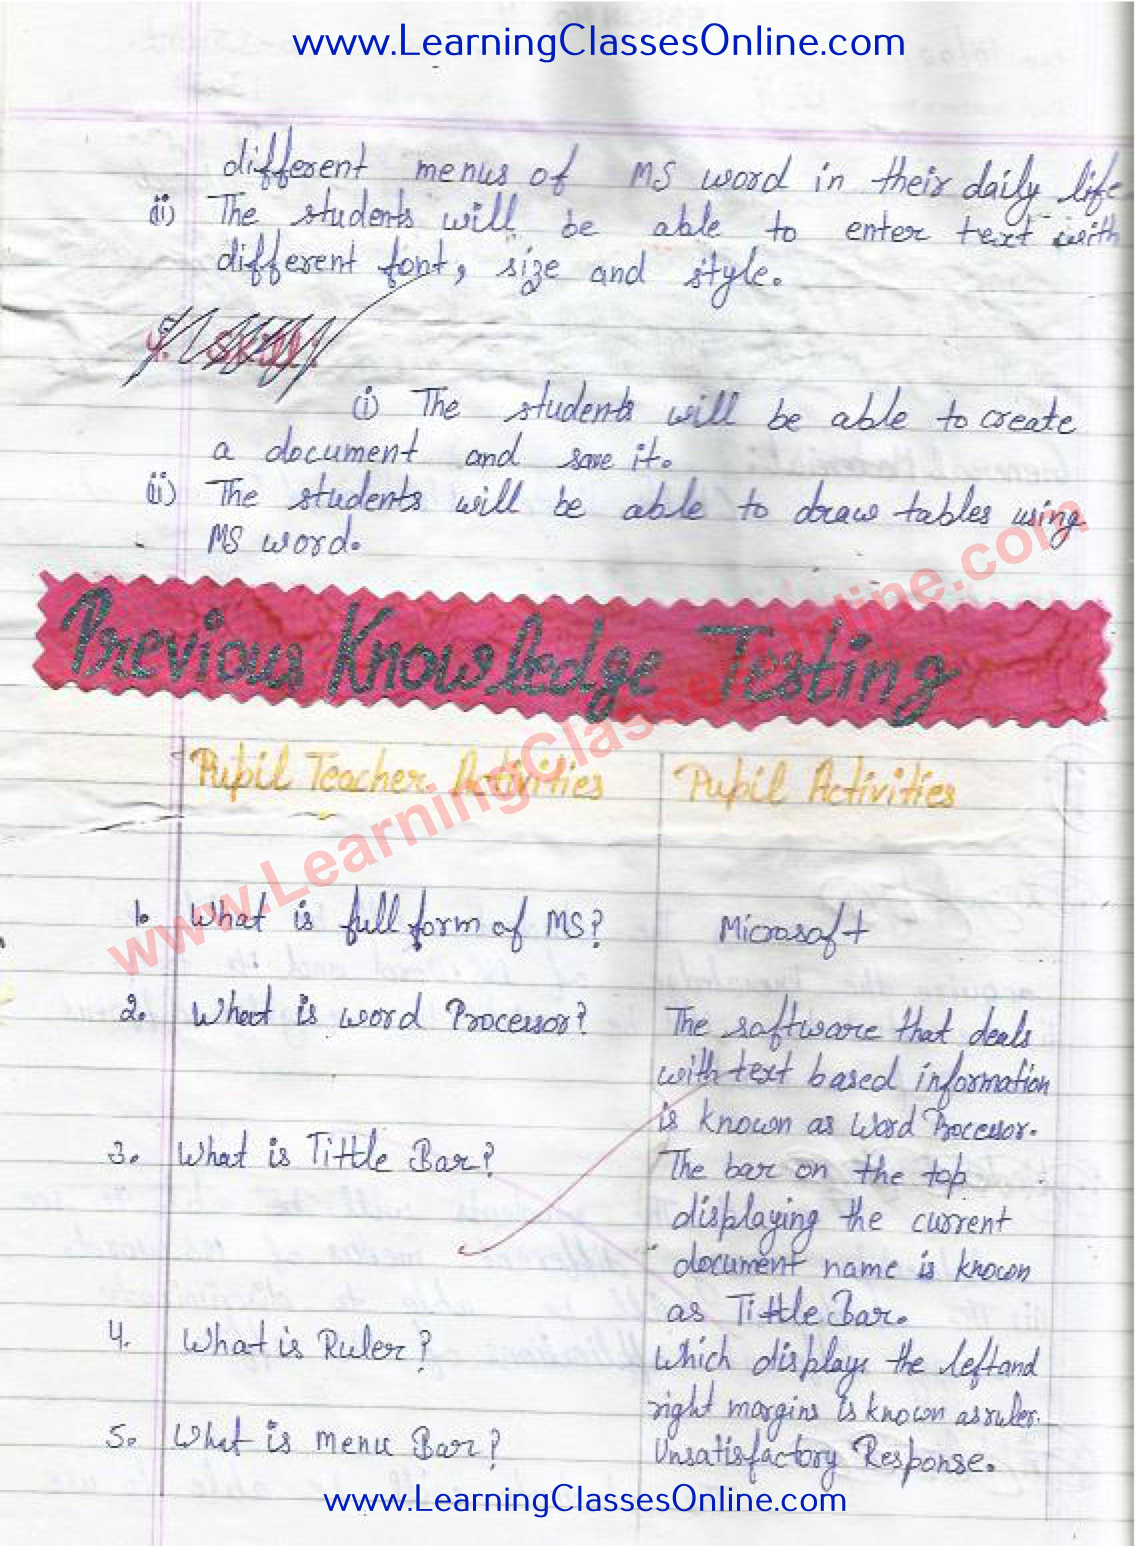 www.LearningClassesOnline.com
different menus of MS word in their daily life
(ii) The students will be able to enter text with
different font, size and style.
(i) The students will be able to create
a document and save it.
(ii) The students will be able to draw tables using
MS word.
Previous Knowledge Testing
Pupil Teacher Activities
Pupil Activities
1. What is full form of MS?
Microsoft
2. What is word Processor?
The software that deals
with text based information
is known as Word Processor.
3. What is Tittle Bar?
The bar on the top
displaying the current
document name is known
as Tittle Bar.
4. What is Ruler?
Which displays the left and
right margins is known as ruler.
5. What is menu Bar?
Unsatisfactory Response.
www.LearningClassesOnline.com
www.LearningClassesOnline.com